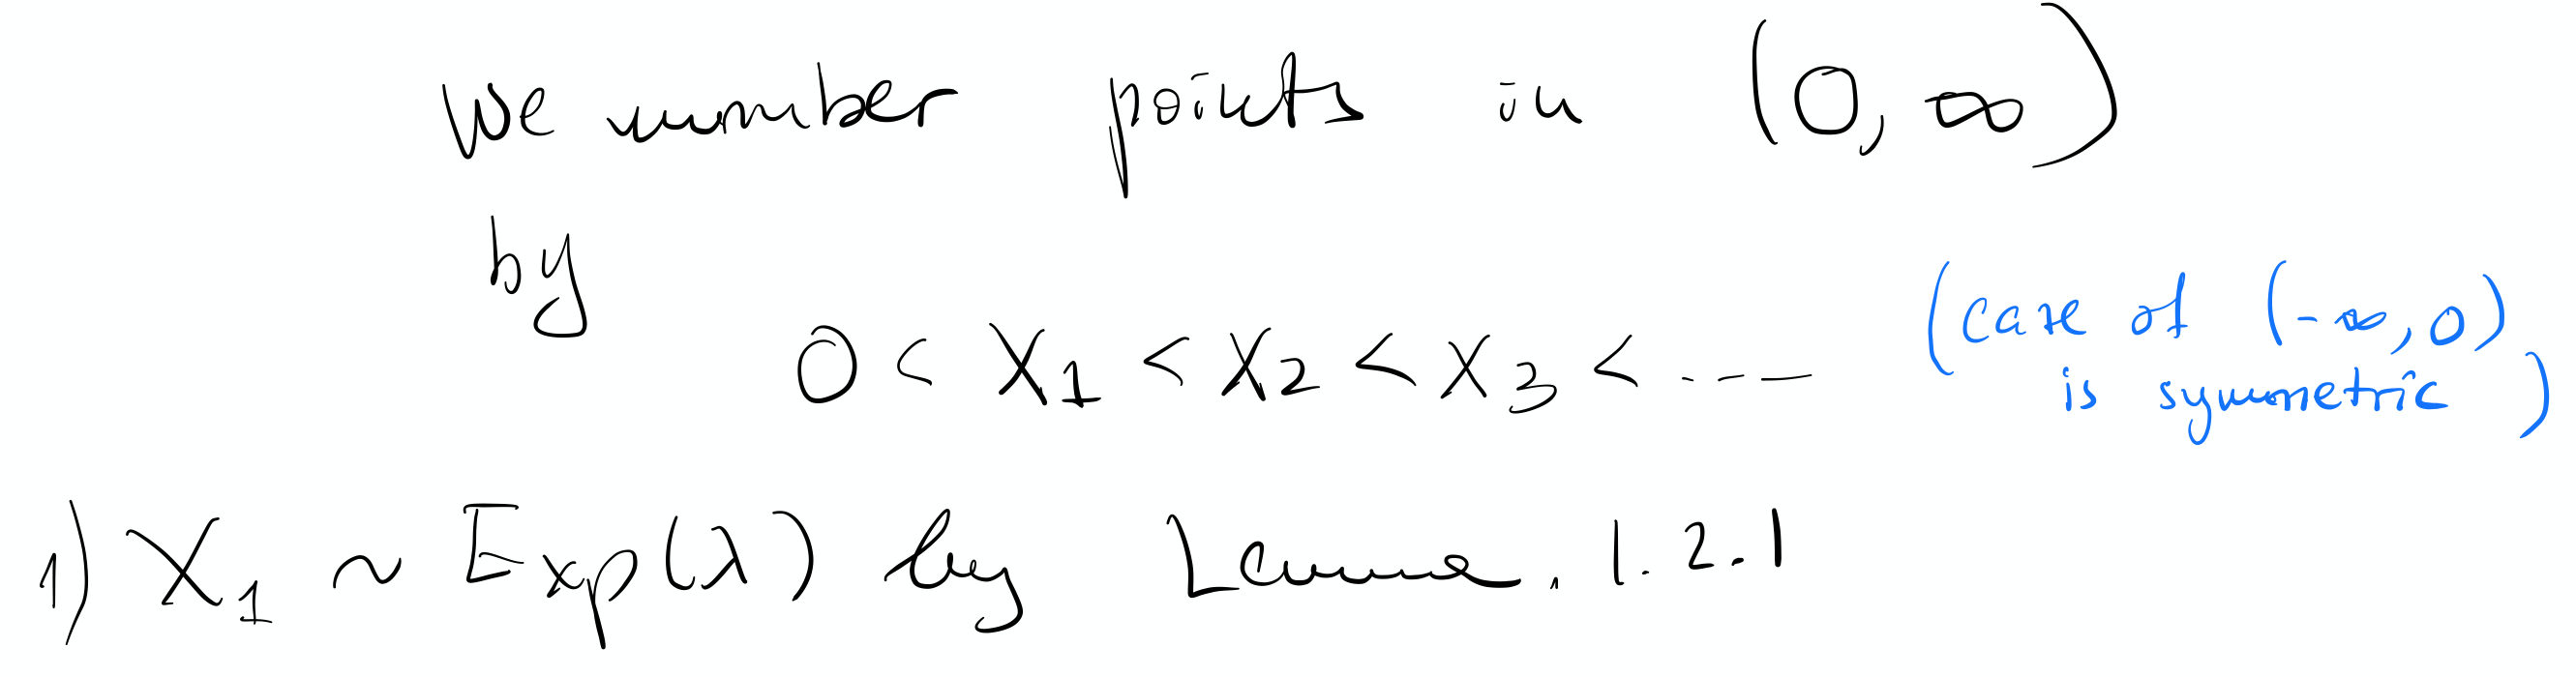 We number points in (0, ∞)
by
0 < X₁ < X₂ < X₃ < ----
(case of (-∞, 0)
is symmetric)
1) X₁ ~ Exp(λ) by Lemma. 1.2.1